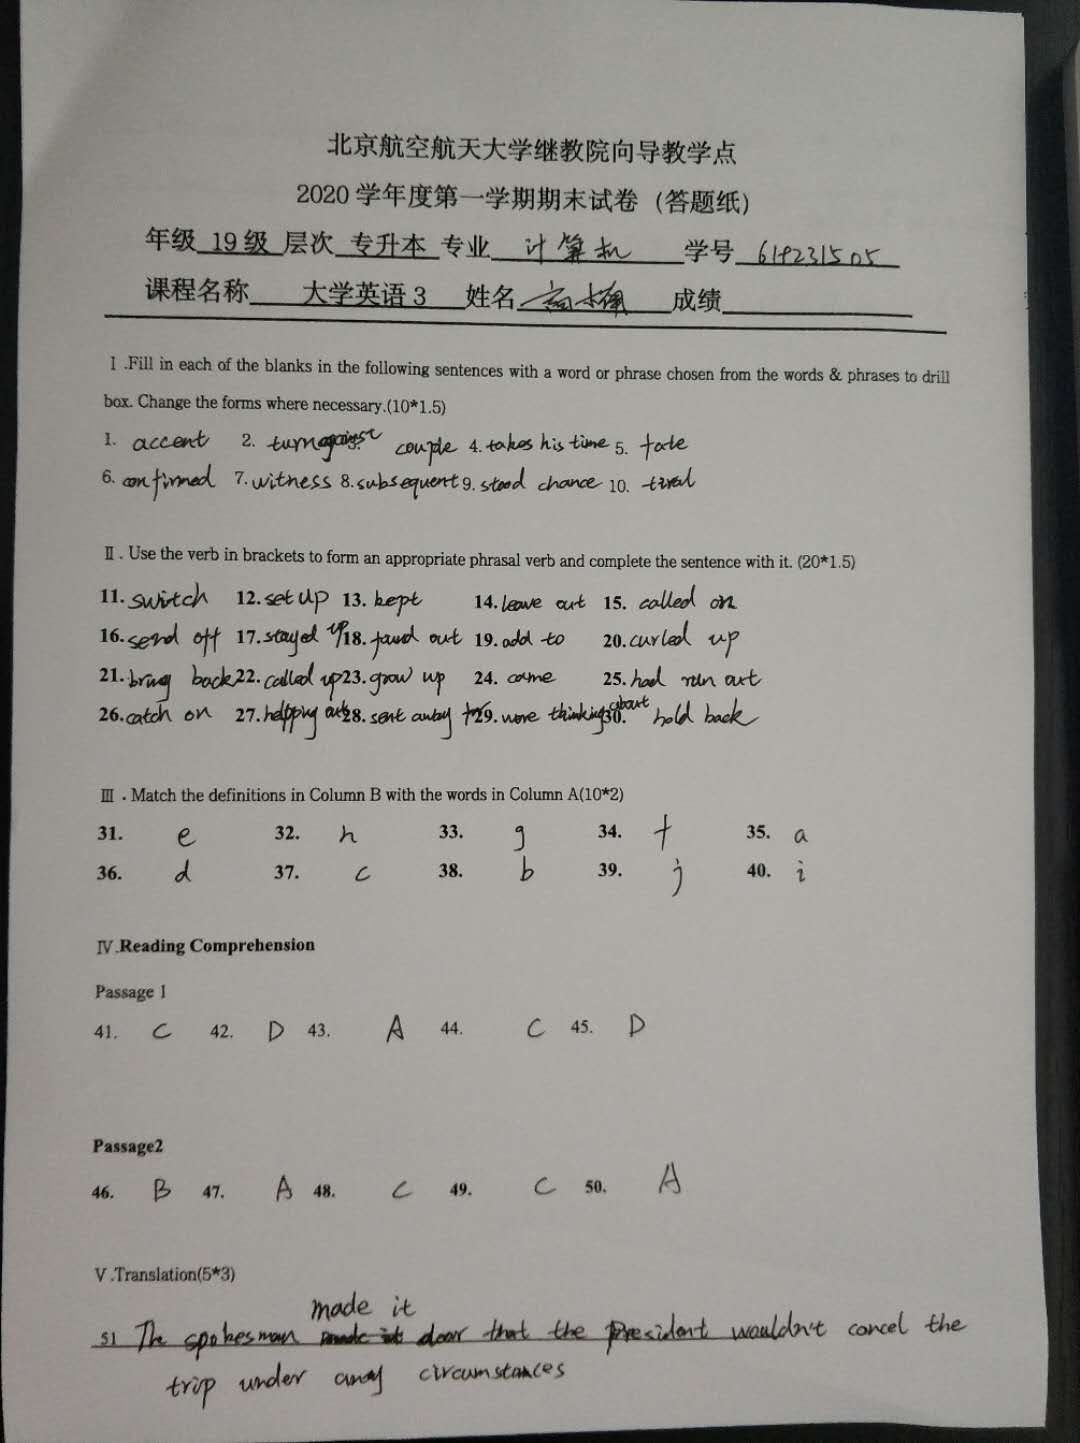 北京航空航天大学继教院向导教学点
2020 学年度第一学期期末试卷（答题纸）
年级 19级 层次 专升本 专业 计算机 学号 619231505
课程名称 大学英语 3 姓名 成绩
Ⅰ.Fill in each of the blanks in the following sentences with a word or phrase chosen from the words & phrases to drill
box. Change the forms where necessary.(10*1.5)
1. accent 2. turn against 3. couple 4. takes his time 5. fate
6. confirmed 7. witness 8. subsequent 9. stood chance 10. tired
Ⅱ. Use the verb in brackets to form an appropriate phrasal verb and complete the sentence with it. (20*1.5)
11. switch 12. set up 13. kept 14. leave out 15. called on
16. send off 17. stayed up 18. found out 19. add to 20. curled up
21. bring back 22. called up 23. grow up 24. came 25. had run out
26. catch on 27. helpping out 28. sent away for 29. were thinking about 30. hold back
Ⅲ. Match the definitions in Column B with the words in Column A(10*2)
31. e 32. h 33. g 34. f 35. a
36. d 37. c 38. b 39. j 40. i
Ⅳ.Reading Comprehension
Passage 1
41. C 42. D 43. A 44. C 45. D
Passage2
46. B 47. A 48. C 49. C 50. A
Ⅴ.Translation(5*3)
made it
51 The spokesman clear that the President wouldn't cancel the
trip under any circumstances